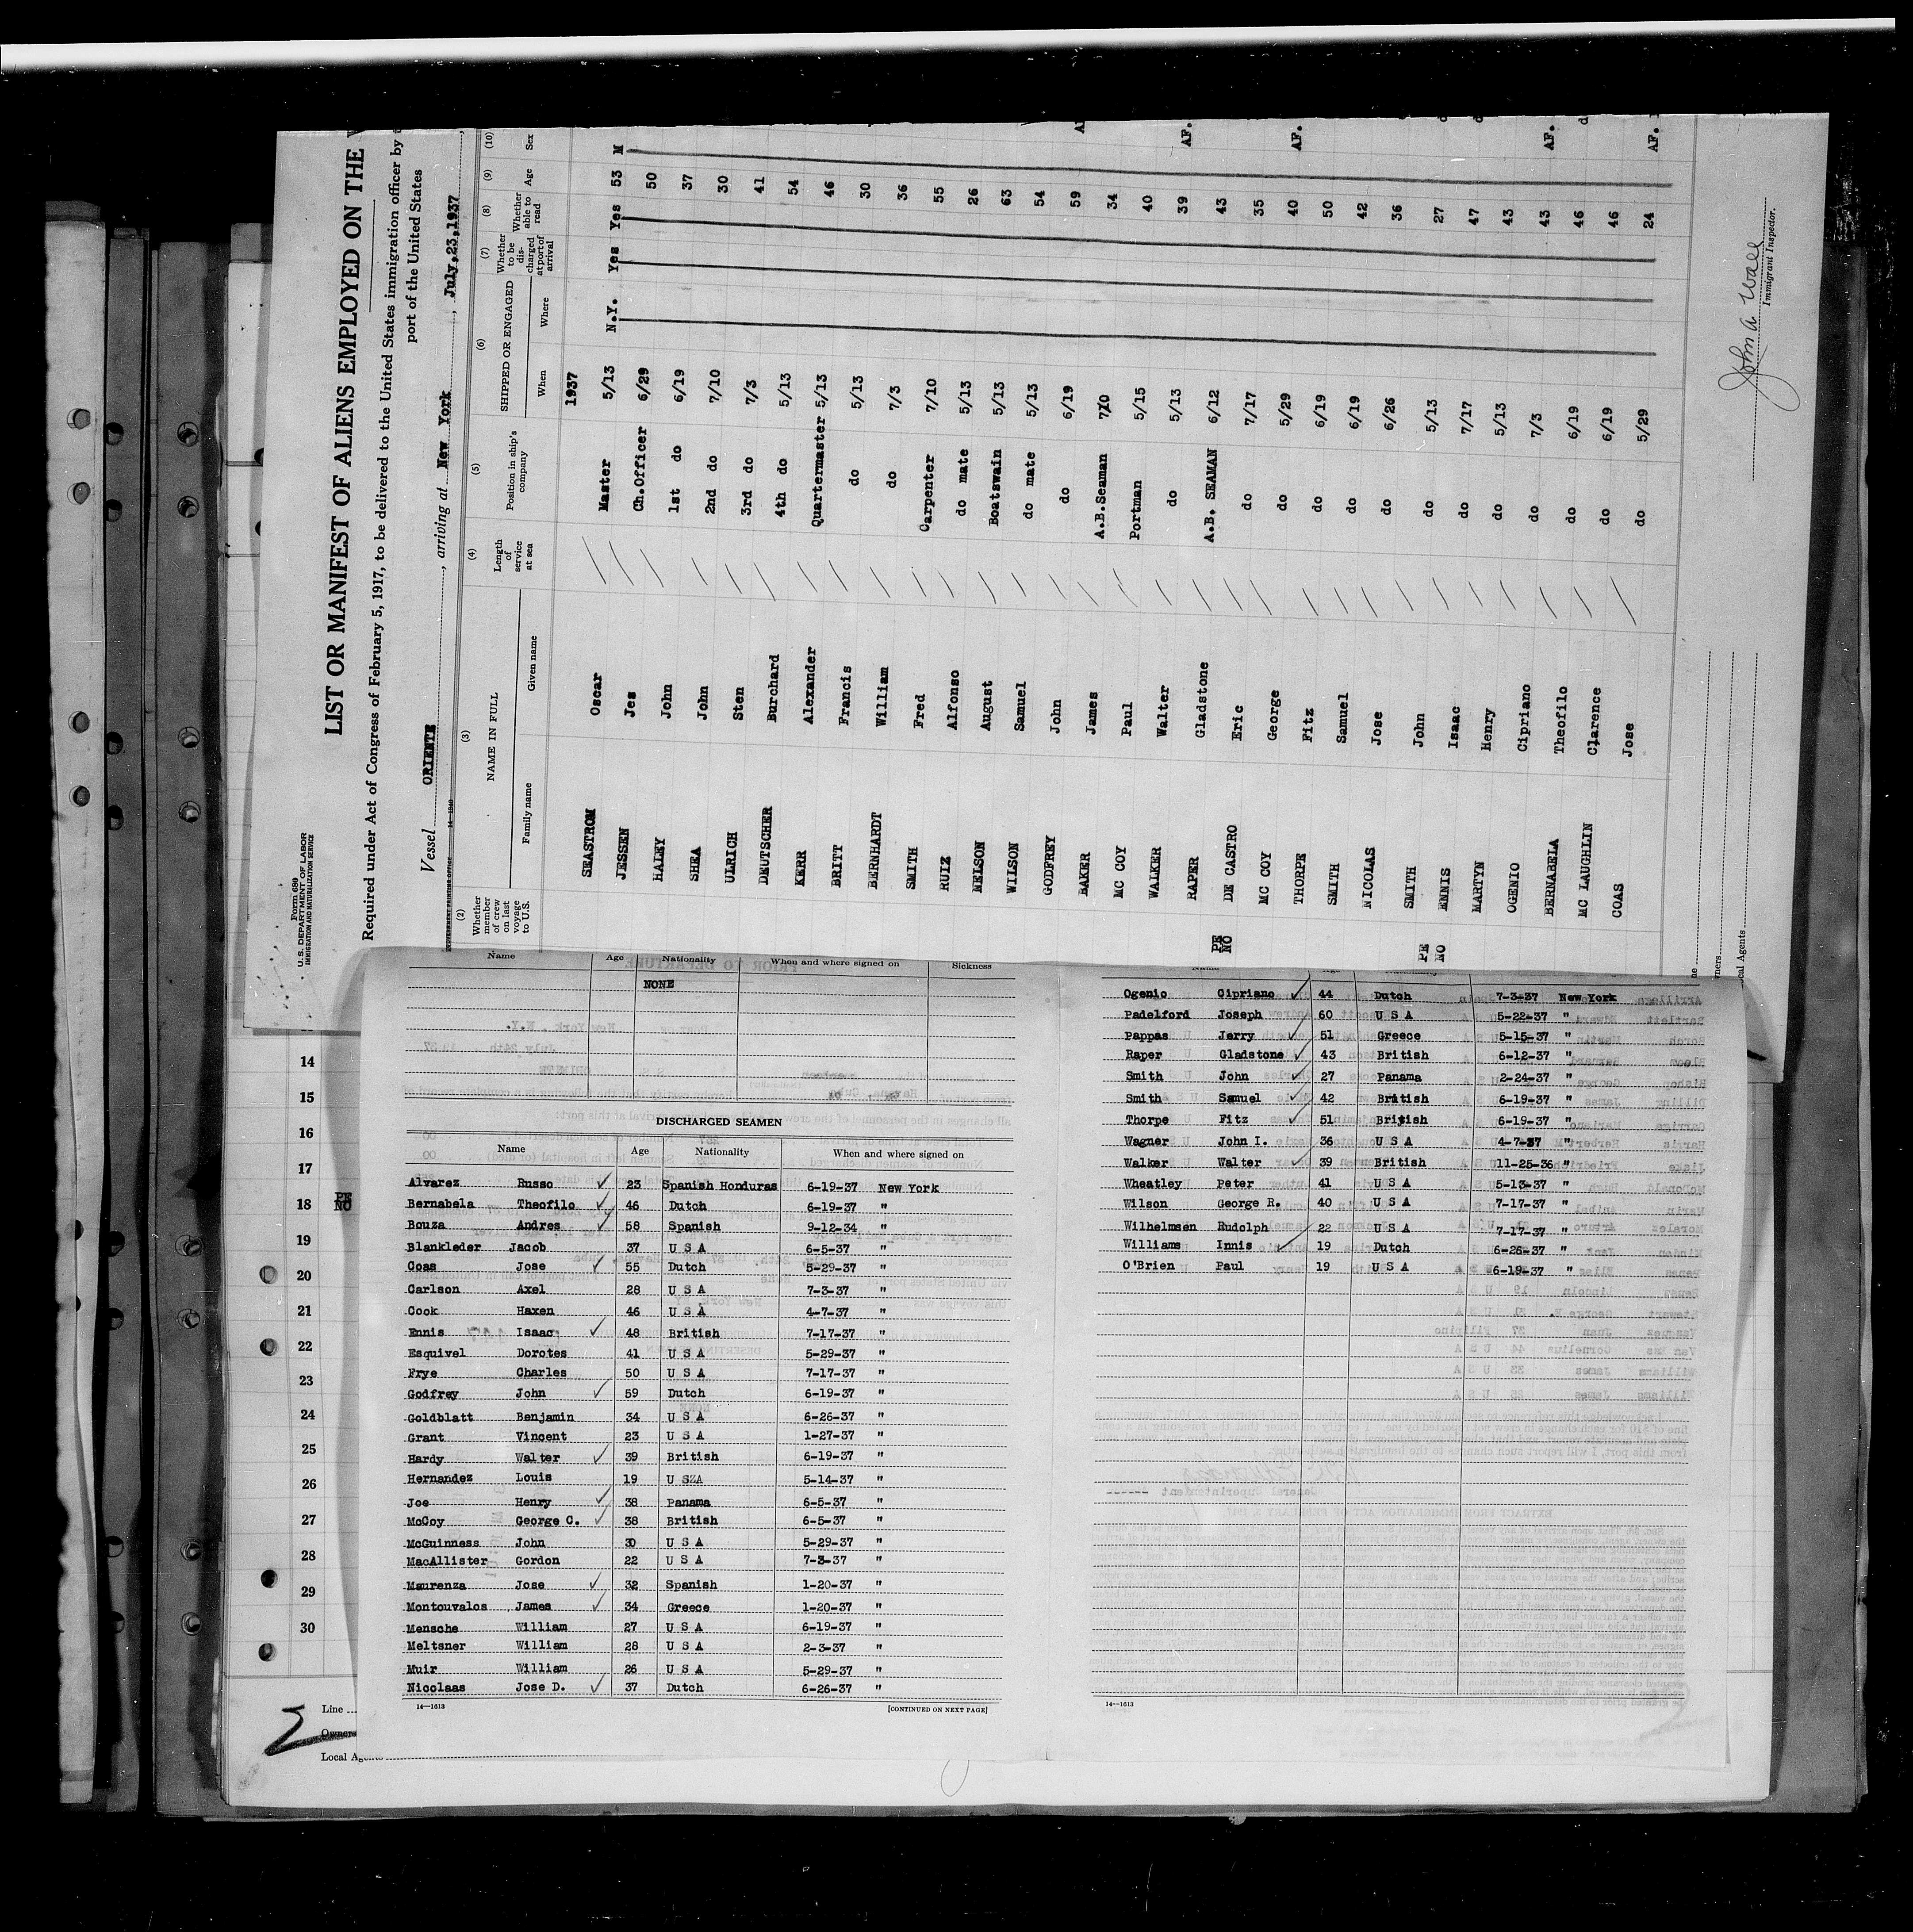 Form 680
U. S. DEPARTMENT OF LABOR
IMMIGRATION AND NATURALIZATION SERVICE
LIST OR MANIFEST OF ALIENS EMPLOYED ON THE
Required under Act of Congress of February 5, 1917, to be delivered to the United States immigration officer by
port of the United States
Vessel ORIENTE, arriving at New York, July,23,1937,
(2) (3) (4) (5) (6) (7) (8) (9) (10)
Whether member of crew on last voyage to U.S. NAME IN FULL Family name Given name Length of service at sea Position in ship's company SHIPPED OR ENGAGED When Where Whether to be discharged at port of arrival Whether able to read Age Sex
1937
SEASTROM Oscar Master 5/13 N.Y. Yes Yes 53 M
JESSEN Jes Ch.Officer 6/29 50
HALEY John 1st do 6/19 37
SHEA John 2nd do 7/10 30
ULRICH Sten 3rd do 7/3 41
DEUTSCHER Burchard 4th do 5/13 54
KERR Alexander Quartermaster 5/13 46
BRITT Francis do 5/13 30
BERNHARDT William do 7/3 36
SMITH Fred Carpenter 7/10 55
RUIZ Alfonso do mate 5/13 26
NELSON August Boatswain 5/13 63
WILSON Samuel do mate 5/13 54
GODFREY John do 6/19 59
BAKER James A.B.Seaman 7/10 34
MC COY Paul Portman 5/15 40
WALKER Walter do 5/13 39 AF.
RAPER Gladstone A.B. SEAMAN 6/12 43
PE NO DE CASTRO Eric do 7/17 35
MC COY George do 5/29 40 AF.
THORPE Fitz do 6/19 50
SMITH Samuel do 6/19 42
NICOLAS Jose do 6/26 36
SMITH John do 5/13 27
PE NO ENNIS Isaac do 7/17 47
MARTYN Henry do 5/13 43
OGENIO Cipriano do 7/3 43 AF.
BERNABELA Theofilo do 6/19 46
MC LAUGHLIN Clarence do 6/19 46
COAS Jose do 5/29 24 AF.
John A Wall
Immigrant Inspector.
Name Age Nationality When and where signed on Sickness
NONE
DISCHARGED SEAMEN
Name Age Nationality When and where signed on
Alvarez Russo 23 Spanish Honduras 6-19-37 New York
Bernabela Theofilo 46 Dutch 6-19-37 "
Bouza Andres 58 Spanish 9-12-34 "
Blankleder Jacob 37 U S A 6-5-37 "
Coas Jose 55 Dutch 5-29-37 "
Carlson Axel 28 U S A 7-3-37 "
Cook Haxen 46 U S A 4-7-37 "
Ennis Isaac 48 British 7-17-37 "
Esquivel Dorotes 41 U S A 5-29-37 "
Frye Charles 50 U S A 7-17-37 "
Godfrey John 59 Dutch 6-19-37 "
Goldblatt Benjamin 34 U S A 6-26-37 "
Grant Vincent 23 U S A 1-27-37 "
Hardy Walter 39 British 6-19-37 "
Hernandez Louis 19 U SZA 5-14-37 "
Joe Henry 38 Panama 6-5-37 "
McCoy George C. 38 British 6-5-37 "
McGuinness John 30 U S A 5-29-37 "
MacAllister Gordon 22 U S A 7-3-37 "
Maurenza Jose 32 Spanish 1-20-37 "
Montouvalos James 34 Greece 1-20-37 "
Mensche William 27 U S A 6-19-37 "
Meltsner William 28 U S A 2-3-37 "
Muir William 26 U S A 5-29-37 "
Nicolaas Jose D. 37 Dutch 6-26-37 "
14—1613 [CONTINUED ON NEXT PAGE]
Ogenio Cipriano 44 Dutch 7-3-37 New York
Padelford Joseph 60 U S A 5-22-37 "
Pappas Jerry 51 Greece 5-15-37 "
Raper Gladstone 43 British 6-12-37 "
Smith John 27 Panama 2-24-37 "
Smith Samuel 42 British 6-19-37 "
Thorpe Fitz 51 British 6-19-37 "
Wagner John I. 36 U S A 4-7-37 "
Walker Walter 39 British 11-25-36 "
Wheatley Peter 41 U S A 5-13-37 "
Wilson George R. 40 U S A 7-17-37 "
Wilhelmsen Rudolph 22 U S A 7-17-37 "
Williams Innis 19 Dutch 6-26-37 "
O'Brien Paul 19 U S A 6-19-37 "
14—1613
14
15
16
17
18 PE NO
19
20
21
22
23
24
25
26
27
28
29
30
Line
Owners
Local Agents